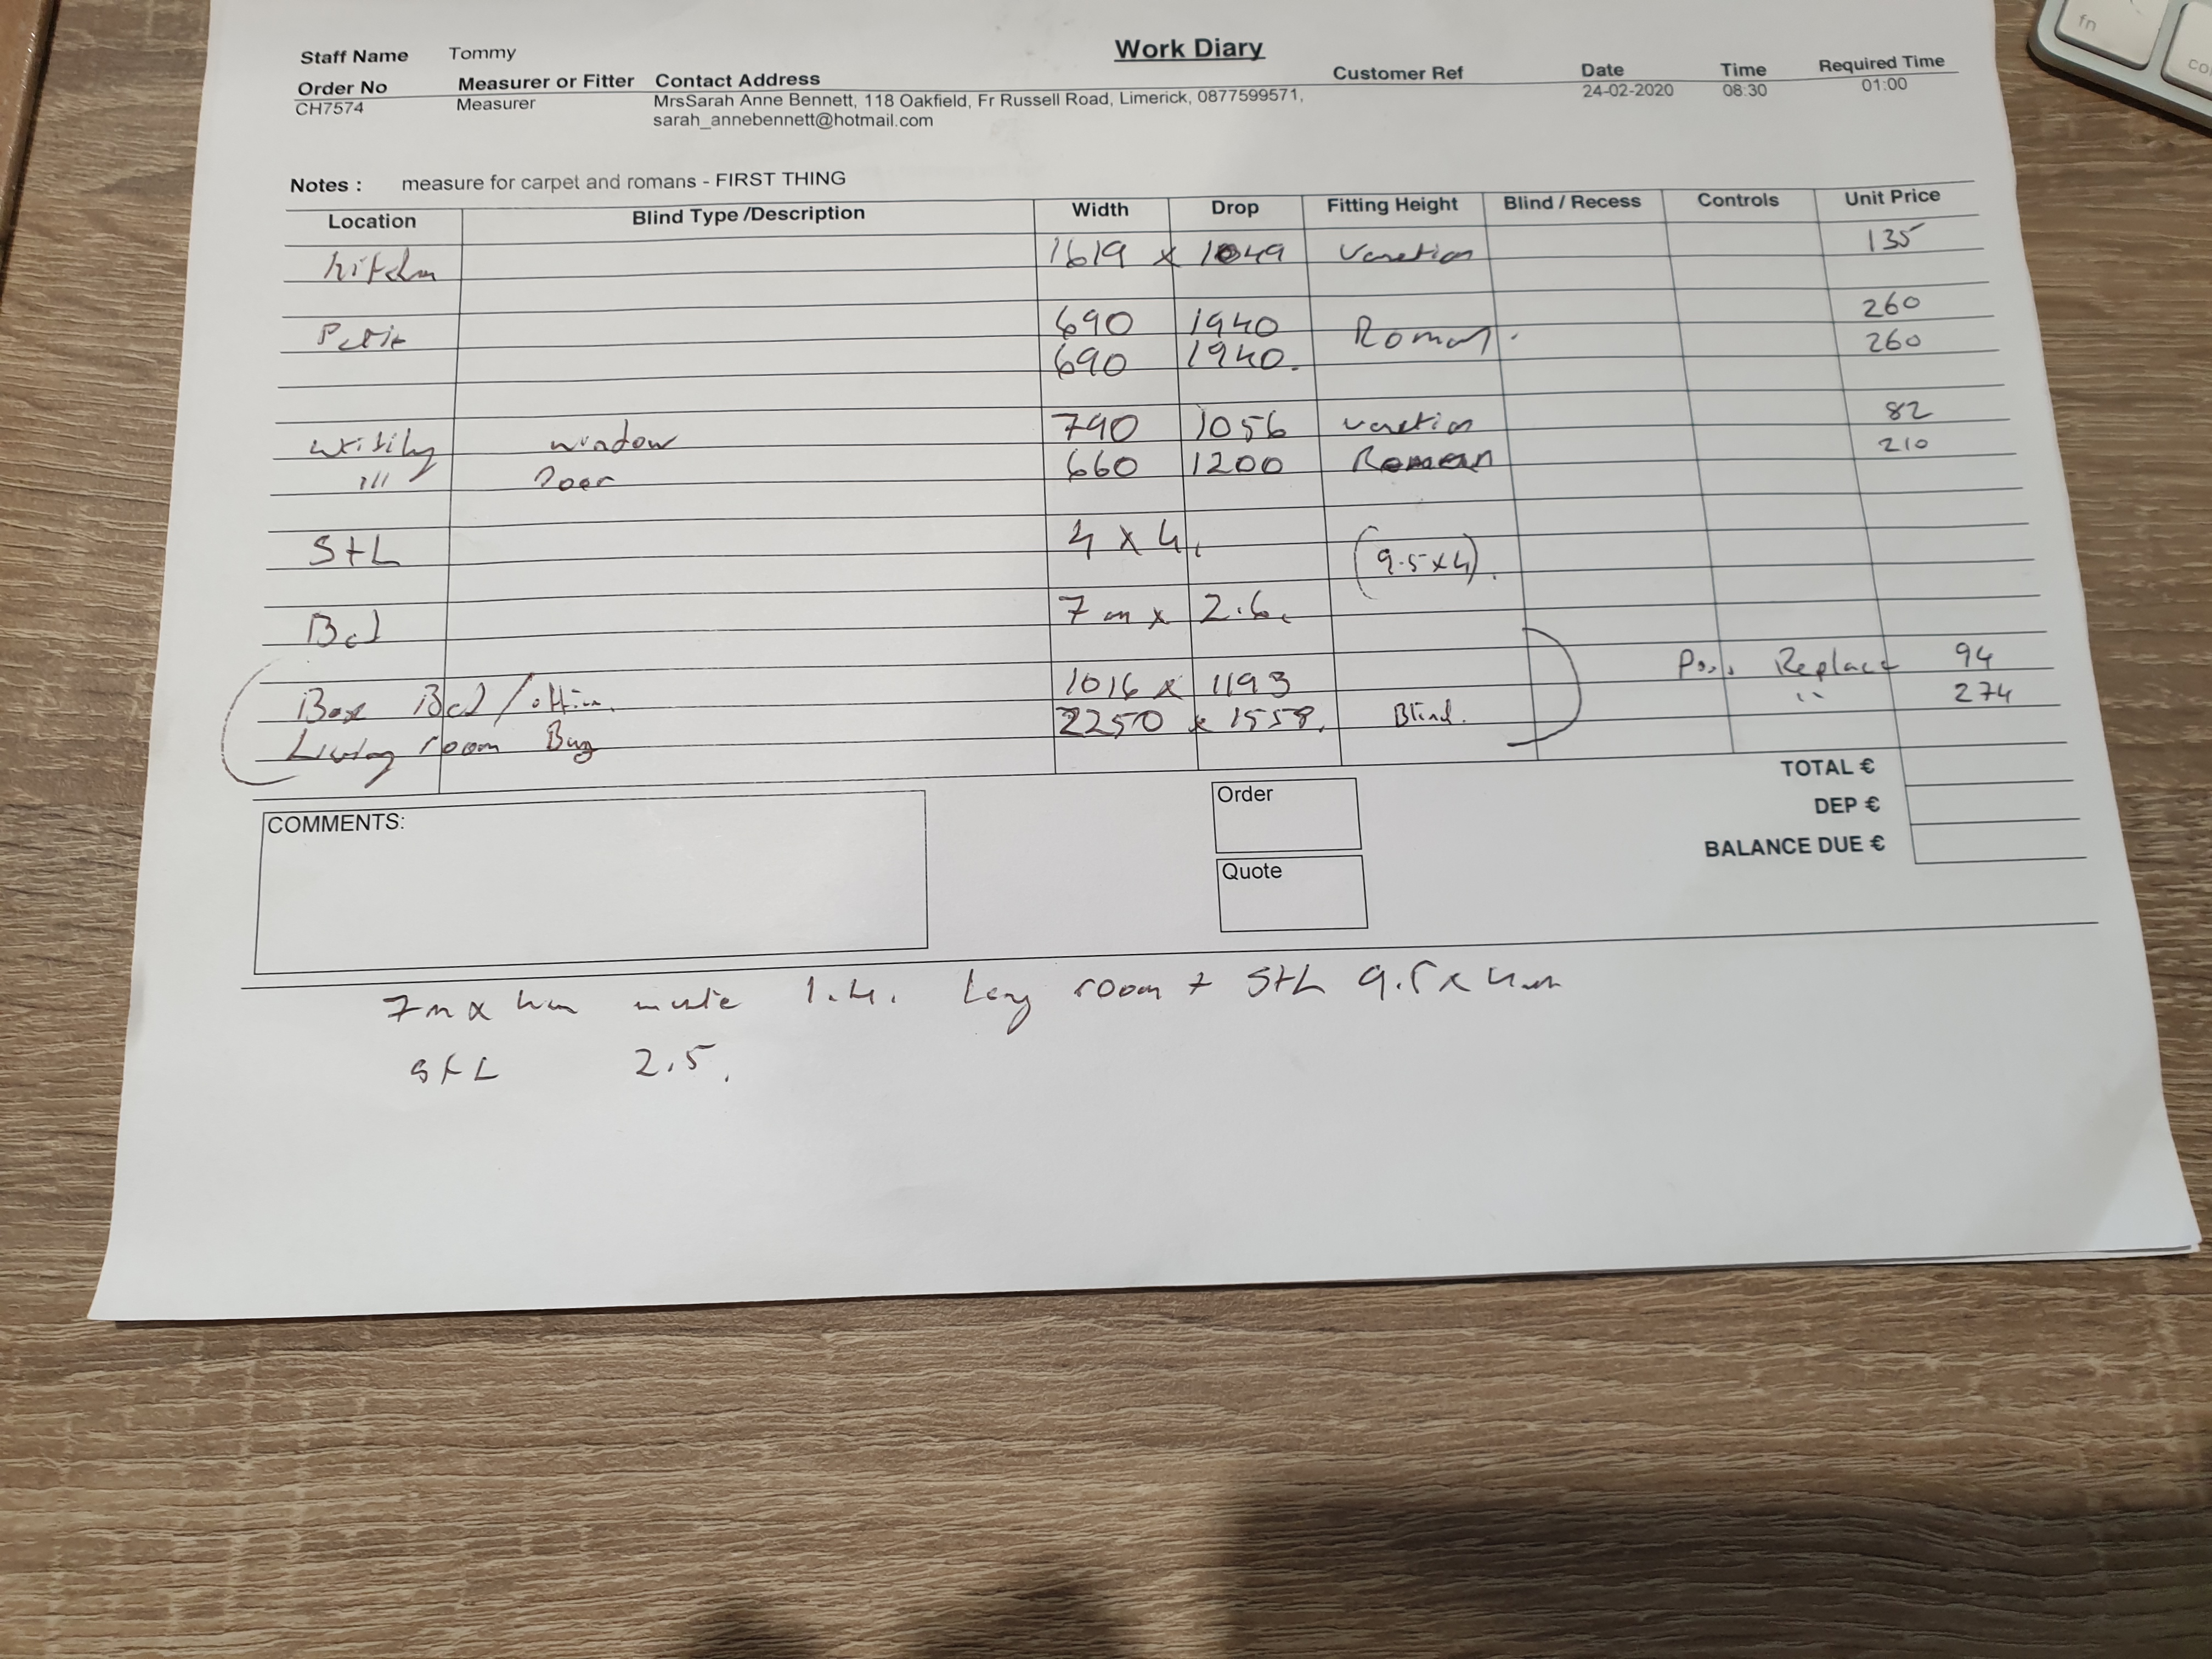 Work Diary
Staff Name Tommy
Order No Measurer or Fitter Contact Address Customer Ref Date Time Required Time
CH7574 Measurer MrsSarah Anne Bennett, 118 Oakfield, Fr Russell Road, Limerick, 0877599571, 24-02-2020 08:30 01:00
sarah_annebennett@hotmail.com
Notes : measure for carpet and romans - FIRST THING
Location Blind Type /Description Width Drop Fitting Height Blind / Recess Controls Unit Price
Kitchen 1619 x 1049 Venetian 135
690 1940 Roman. 260
690 1940. 260
Utility window 790 1056 Venetian 82
Door 660 1200 Roman 210
S+L 4 x 4 (9.5x4).
Bed 7m x 2.6
Box Bed / 1016 x 1193 Replace 94
Living room Bay 2250 x 1558. Blind. " 274
TOTAL €
DEP €
BALANCE DUE €
COMMENTS:
Order
Quote
7m x 1.4. room + S+L 9.5 x 4m
S+L 2.5.
fn